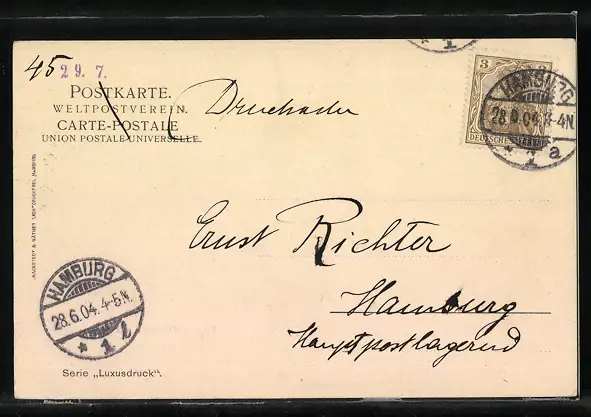 45
29. 7.
POSTKARTE.
WELTPOSTVEREIN.
CARTE-POSTALE
UNION POSTALE UNIVERSELLE.
Drucksache
3
DEUTSCHES REICH
HAMBURG
28.6.04. 4-5N.
* 1 a
Ernst Richter
Hamburg
Hauptpostlagernd
HAMBURG
28.6.04. 4-5N.
* 1 l
Serie „Luxusdruck“.